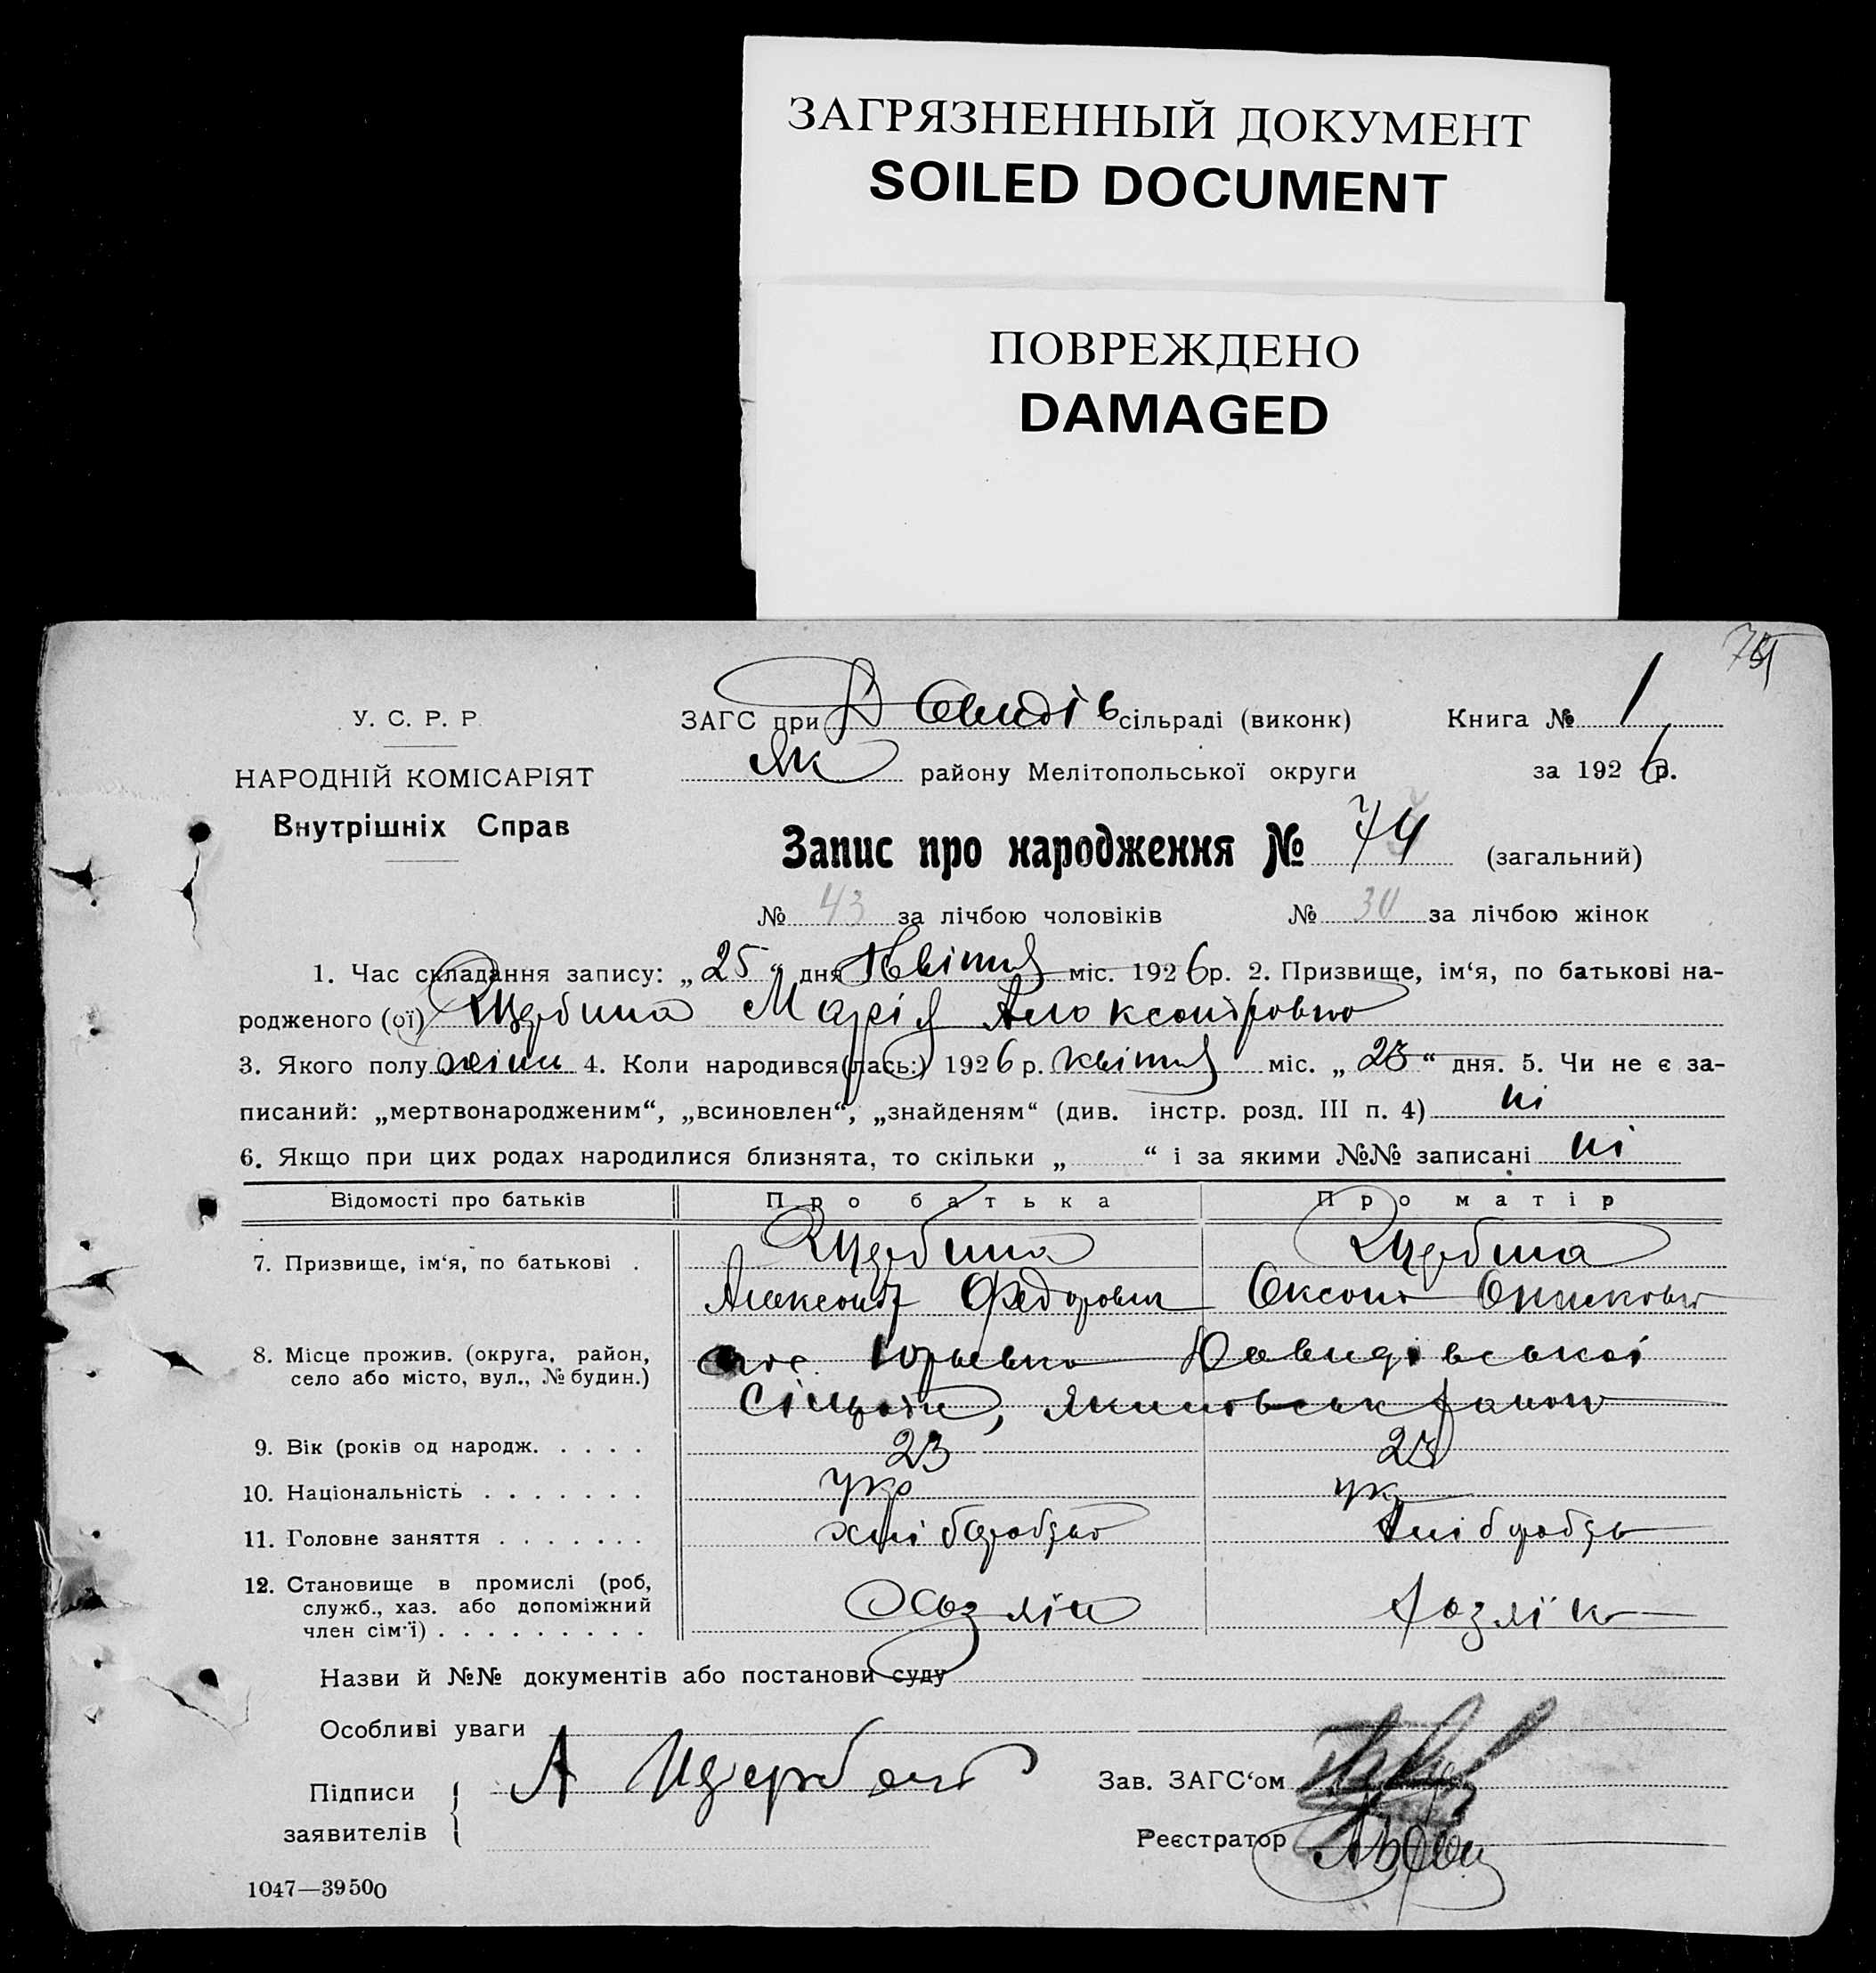 ЗАГРЯЗНЕННЫЙ ДОКУМЕНТ
SOILED DOCUMENT
ПОВРЕЖДЕНО
DAMAGED
У. С. Р. Р.
НАРОДНІЙ КОМІСАРІЯТ
Внутрішніх Справ
ЗАГС при Давидів сільраді (виконк) Книга № 1
Як району Мелітопольської округи за 1926 р.
Запис про народження № 74 (загальний)
№ 43 за лічбою чоловіків № за лічбою жінок
1. Час складання запису: „25“ дня Квітня міс. 1926 р. 2. Призвище, ім‘я, по батькові на-
родженого (ої) Щербина Марія Александровна
3. Якого полу жіно 4. Коли народився(лась:) 1926 р. квітня міс. „23“ дня. 5. Чи не є за-
писаний: „мертвонародженим“, „всиновлен“, „знайденям“ (див. інстр. розд. III п. 4) ні
6. Якщо при цих родах народилися близнята, то скільки „ “ і за якими №№ записані ні
Відомості про батьків Про батька Про матір
7. Призвище, ім‘я, по батькові . Щербина Щербина
Александр Федорович Оксана
8. Місце прожив. (округа, район,
село або місто, вул., № будин.)
пос. Юрьевка Давидівської
Сільради, Якимовськ району
9. Вік (років од народж. . . . . 23 23
10. Національність . . . . . . . укр ук
11. Головне заняття . . . . . . . хліборобство хліборобство
12. Становище в промислі (роб,
служб., хаз. або допоміжний
член сім‘ї) . . . . . . . . . Хозяїн хозяїка
Назви й №№ документів або постанови суду
Особливі уваги
Підписи
заявителів
А Щербина
Зав. ЗАГС‘ом
Реєстратор
1047—39500